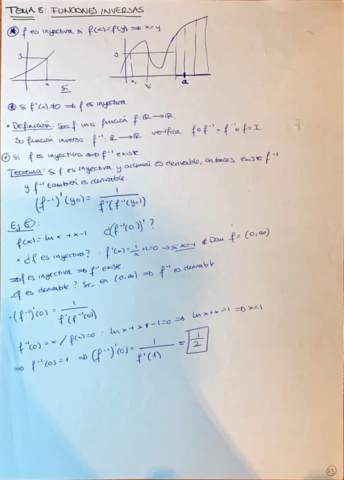 TEMA 8: FUNCIONES INVERSAS
f es inyectiva si f(x)=f(y) ⇒ x=y
y
x
Sí
a
Si f'(x)≠0 ⇒ f es inyectiva
• Definición: Sea f una función f: ℝ→ℝ
Su función inversa f⁻¹: ℝ→ℝ verifica f∘f⁻¹ = f⁻¹∘f = I
Si f es inyectiva ⇒ f⁻¹ existe
Teorema: Si f es inyectiva y además es derivable, entonces existe f⁻¹
y f⁻¹ también es derivable.
(f⁻¹)'(y₀) = 1 / f'(f⁻¹(y₀))
f(x) = ln x + x - 1 ¿(f⁻¹(0))'?
• ¿f es inyectiva?: f'(x) = 1/x + 1 = 0 ⇒ x = -1 ∉ Dom f = (0,∞)
⇒ f es inyectiva ⇒ f⁻¹ existe
¿f es derivable? Sí, en (0,∞) ⇒ f⁻¹ es derivable
• (f⁻¹)'(0) = 1 / f'(f⁻¹(0))
f⁻¹(0) = x / f(x)=0 : ln x + x - 1 = 0 ⇒ ln x + x = 1 ⇒ x = 1
⇒ f⁻¹(0) = 1 ⇒ (f⁻¹)'(0) = 1 / f'(1) = 1/2